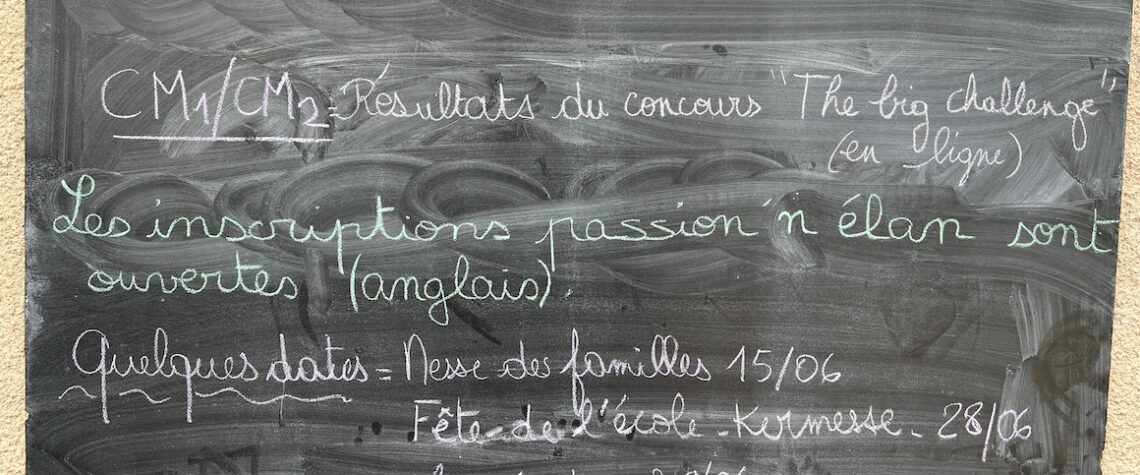 CM1/CM2 = Résultats du concours "The big challenge"
(en ligne)
Les inscriptions passion'n élan sont
ouvertes (anglais)
Quelques dates = Messe des familles 15/06
Fête de l'école - Kermesse - 28/06